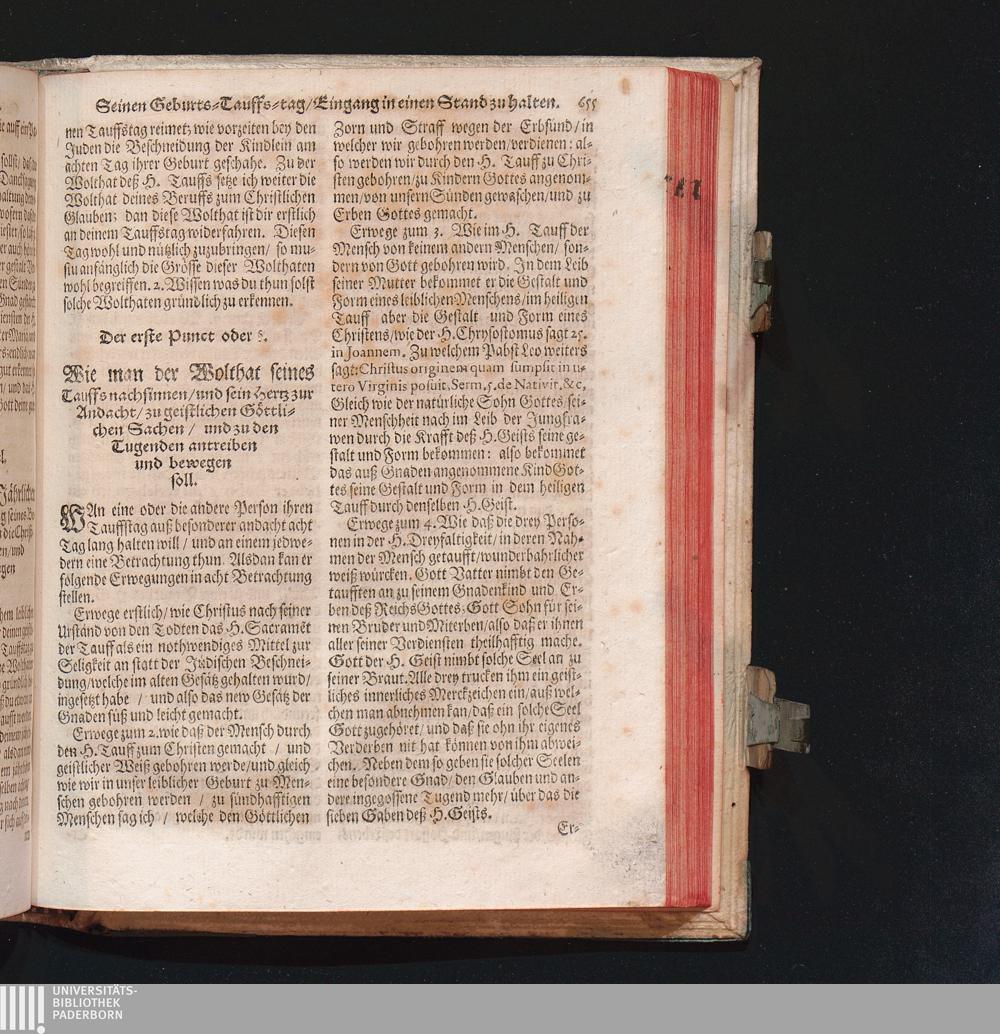 Seinen Geburts-Tauffs-tag/Eingang in einen Stand zu halten. 655
nen Tauffstag reimet; wie vorzeiten bey den
Juden die Beschneidung der Kindlein am
achten Tag ihrer Geburt geschahe. Zu der
Wolthat deß H. Tauffs setze ich weiter die
Wolthat deines Beruffs zum Christlichen
Glauben; dan diese Wolthat ist dir erstlich
an deinem Tauffstag widerfahren. Diesen
Tag wohl und nützlich zuzubringen/ so mu-
stu anfänglich die Grösse dieser Wolthaten
wohl begreiffen. 2. Wissen was du thun solst
solche Wolthaten gründlich zu erkennen.
Der erste Punct oder §.
Wie man der Wolthat seines
Tauffs nachsinnen/und sein Hertz zur
Andacht/ zu geistlichen Göttli-
chen Sachen/ und zu den
Tugenden antreiben
und bewegen
soll.
WAn eine oder die andere Person ihren
Tauffstag auß besonderer andacht acht
Tag lang halten will/ und an einem jedwe-
dern eine Betrachtung thun. Alsdan kan er
folgende Erwegungen in acht Betrachtung
stellen.
Erwege erstlich/ wie Christus nach seiner
Urständ von den Todten das H. Sacramēt
der Tauff als ein nothwendiges Mittel zur
Seligkeit an statt der Jüdischen Beschnei-
dung/welche im alten Gesätz gehalten wurd/
ingesetzt habe / und also das new Gesätz der
Gnaden süß und leicht gemacht.
Erwege zum 2. wie daß der Mensch durch
den H. Tauff zum Christen gemacht / und
geistlicher Weiß gebohren werde/und gleich
wie wir in unser leiblicher Geburt zu Men-
schen gebohren werden / zu sündhafftigen
Menschen sag ich/ welche den Göttlichen
Zorn und Straff wegen der Erbsünd/in
welcher wir gebohren werden/verdienen: al-
so werden wir durch den H. Tauff zu Chri-
sten gebohren/zu Kindern Gottes angenom-
men/von unsern Sünden gewaschen/und zu
Erben Gottes gemacht.
Erwege zum 3. Wie im H. Tauff der
Mensch von keinem andern Menschen/ son-
dern von Gott gebohren wird. In dem Leib
seiner Mutter bekommet er die Gestalt und
Form eines leiblichen Menschens/im heiligen
Tauff aber die Gestalt und Form eines
Christens/wie der H. Chrysostomus sagt 25.
in Joannem. Zu welchem Pabst Leo weiters
sagt: Christus originem quam sumpsit in u-
tero Virginis posuit, Serm. 5. de Nativit, &c,
Gleich wie der natürliche Sohn Gottes sei-
ner Menschheit nach im Leib der Jungfra-
wen durch die Krafft deß H. Geists seine ge-
stalt und Form bekommen: also bekommet
das auß Gnaden angenommene Kind Got-
tes seine Gestalt und Form in dem heiligen
Tauff durch denselben H. Geist.
Erwege zum 4. Wie daß die drey Perso-
nen in der H. Dreyfaltigkeit/ in deren Nah-
men der Mensch getaufft/wunderbahrlicher
weiß würcken. Gott Vatter nimbt den Ge-
taufften an zu seinem Gnadenkind und Er-
ben deß Reichs Gottes. Gott Sohn für sei-
nen Bruder und Miterben/also daß er ihnen
aller seiner Verdiensten theilhafftig mache.
Gott der H. Geist nimbt solche Seel an zu
seiner Braut. Alle drey trucken ihm ein geist-
liches innerliches Merckzeichen ein/auß wel-
chen man abnehmen kan/daß ein solche Seel
Gott zugehöret/ und daß sie ohn ihr eigenes
Verderben nit hat können von ihm abwei-
chen. Neben dem so geben sie solcher Seelen
eine besondere Gnad/ den Glauben und an-
dere ingegossene Tugend mehr/ über das die
sieben Gaben deß H. Geists.
Er-
UNIVERSITÄTS-
BIBLIOTHEK
PADERBORN